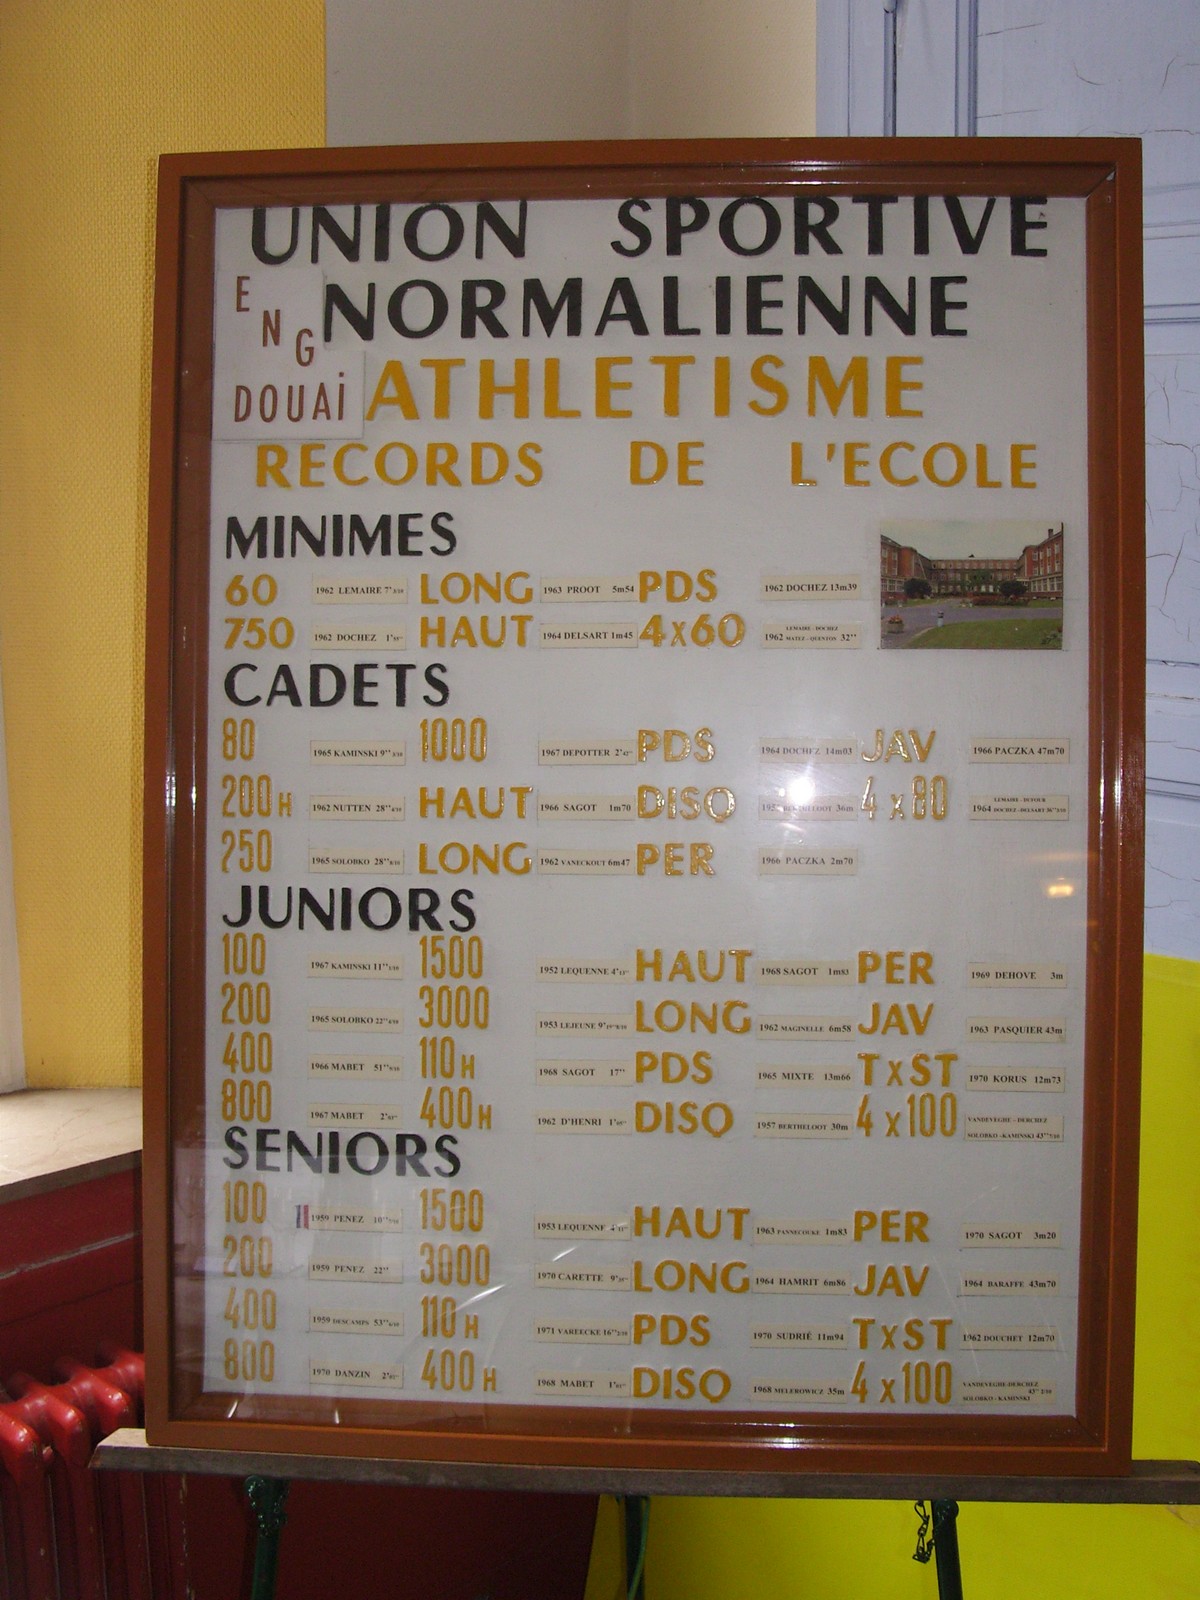 UNION SPORTIVE
ENG
NORMALIENNE
DOUAi
ATHLETISME
RECORDS DE L'ECOLE
MINIMES
60 1962 LEMAIRE 7" LONG 1963 PROOT 5m54 PDS 1962 DOCHEZ 13m39
750 1962 DOCHEZ HAUT 1964 DELSART 1m45 4x60 1962 LEMAIRE - DOCHEZ MATEZ - QUENTON 32''
CADETS
80 1965 KAMINSKI 9'' 1000 1967 DEPOTTER PDS 1964 DOCHEZ 14m03 JAV 1966 PACZKA 47m70
200H 1962 NUTTEN 28'' HAUT 1966 SAGOT 1m70 DISQ BERTHELOOT 36m 4x80 1964 LEMAIRE - DUTOUR DOCHEZ - DELSART 36''
250 1965 SOLOBKO 28'' LONG 1962 VANECKOUT 6m47 PER 1966 PACZKA 2m70
JUNIORS
100 1967 KAMINSKI 11'' 1500 1952 LEQUENNE HAUT 1968 SAGOT 1m83 PER 1969 DEHOVE 3m
200 1965 SOLOBKO 22'' 3000 1953 LEJEUNE LONG 1962 MAGINELLE 6m58 JAV 1963 PASQUIER 43m
400 1966 MABET 51'' 110H 1968 SAGOT 17'' PDS 1965 MIXTE 13m66 TxST 1970 KORUS 12m73
800 1967 MABET 400H 1962 D'HENRI DISQ 1957 BERTHELOOT 30m 4x100 VANDEVEGHE - DERCHEZ SOLOBKO - KAMINSKI 43''
SENIORS
100 1959 PENEZ 10'' 1500 1953 LEQUENNE HAUT 1963 PANNECOUKE 1m83 PER 1970 SAGOT 3m20
200 1959 PENEZ 22'' 3000 1970 CARETTE LONG 1964 HAMRIT 6m86 JAV 1964 BARAFFE 43m70
400 1959 DESCAMPS 53'' 110H 1971 VAREECKE 16'' PDS 1970 SUDRIÉ 11m94 TxST 1962 DOUCHET 12m70
800 1970 DANZIN 400H 1968 MABET DISQ 1968 MELEROWICZ 35m 4x100 VANDEVEGHE-DERCHEZ SOLOBKO - KAMINSKI